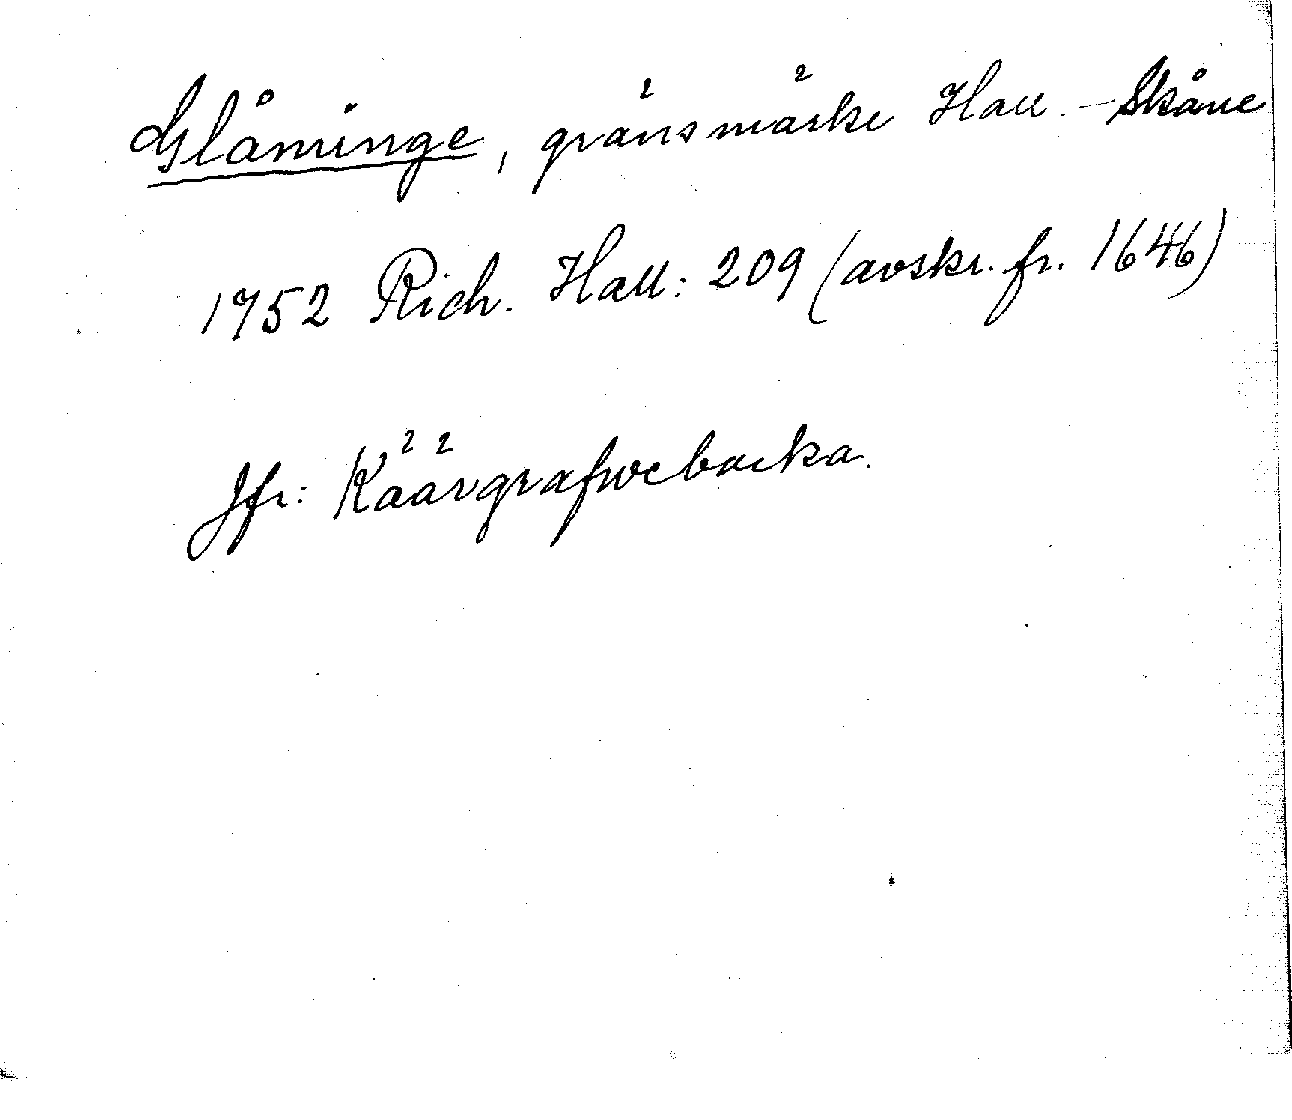 Glåminge, gränsmärke Hall. - Skåne
1752 Rich. Hall: 209 (avskr. fr. 1646)
Jfr: Käärgrafwebacka.